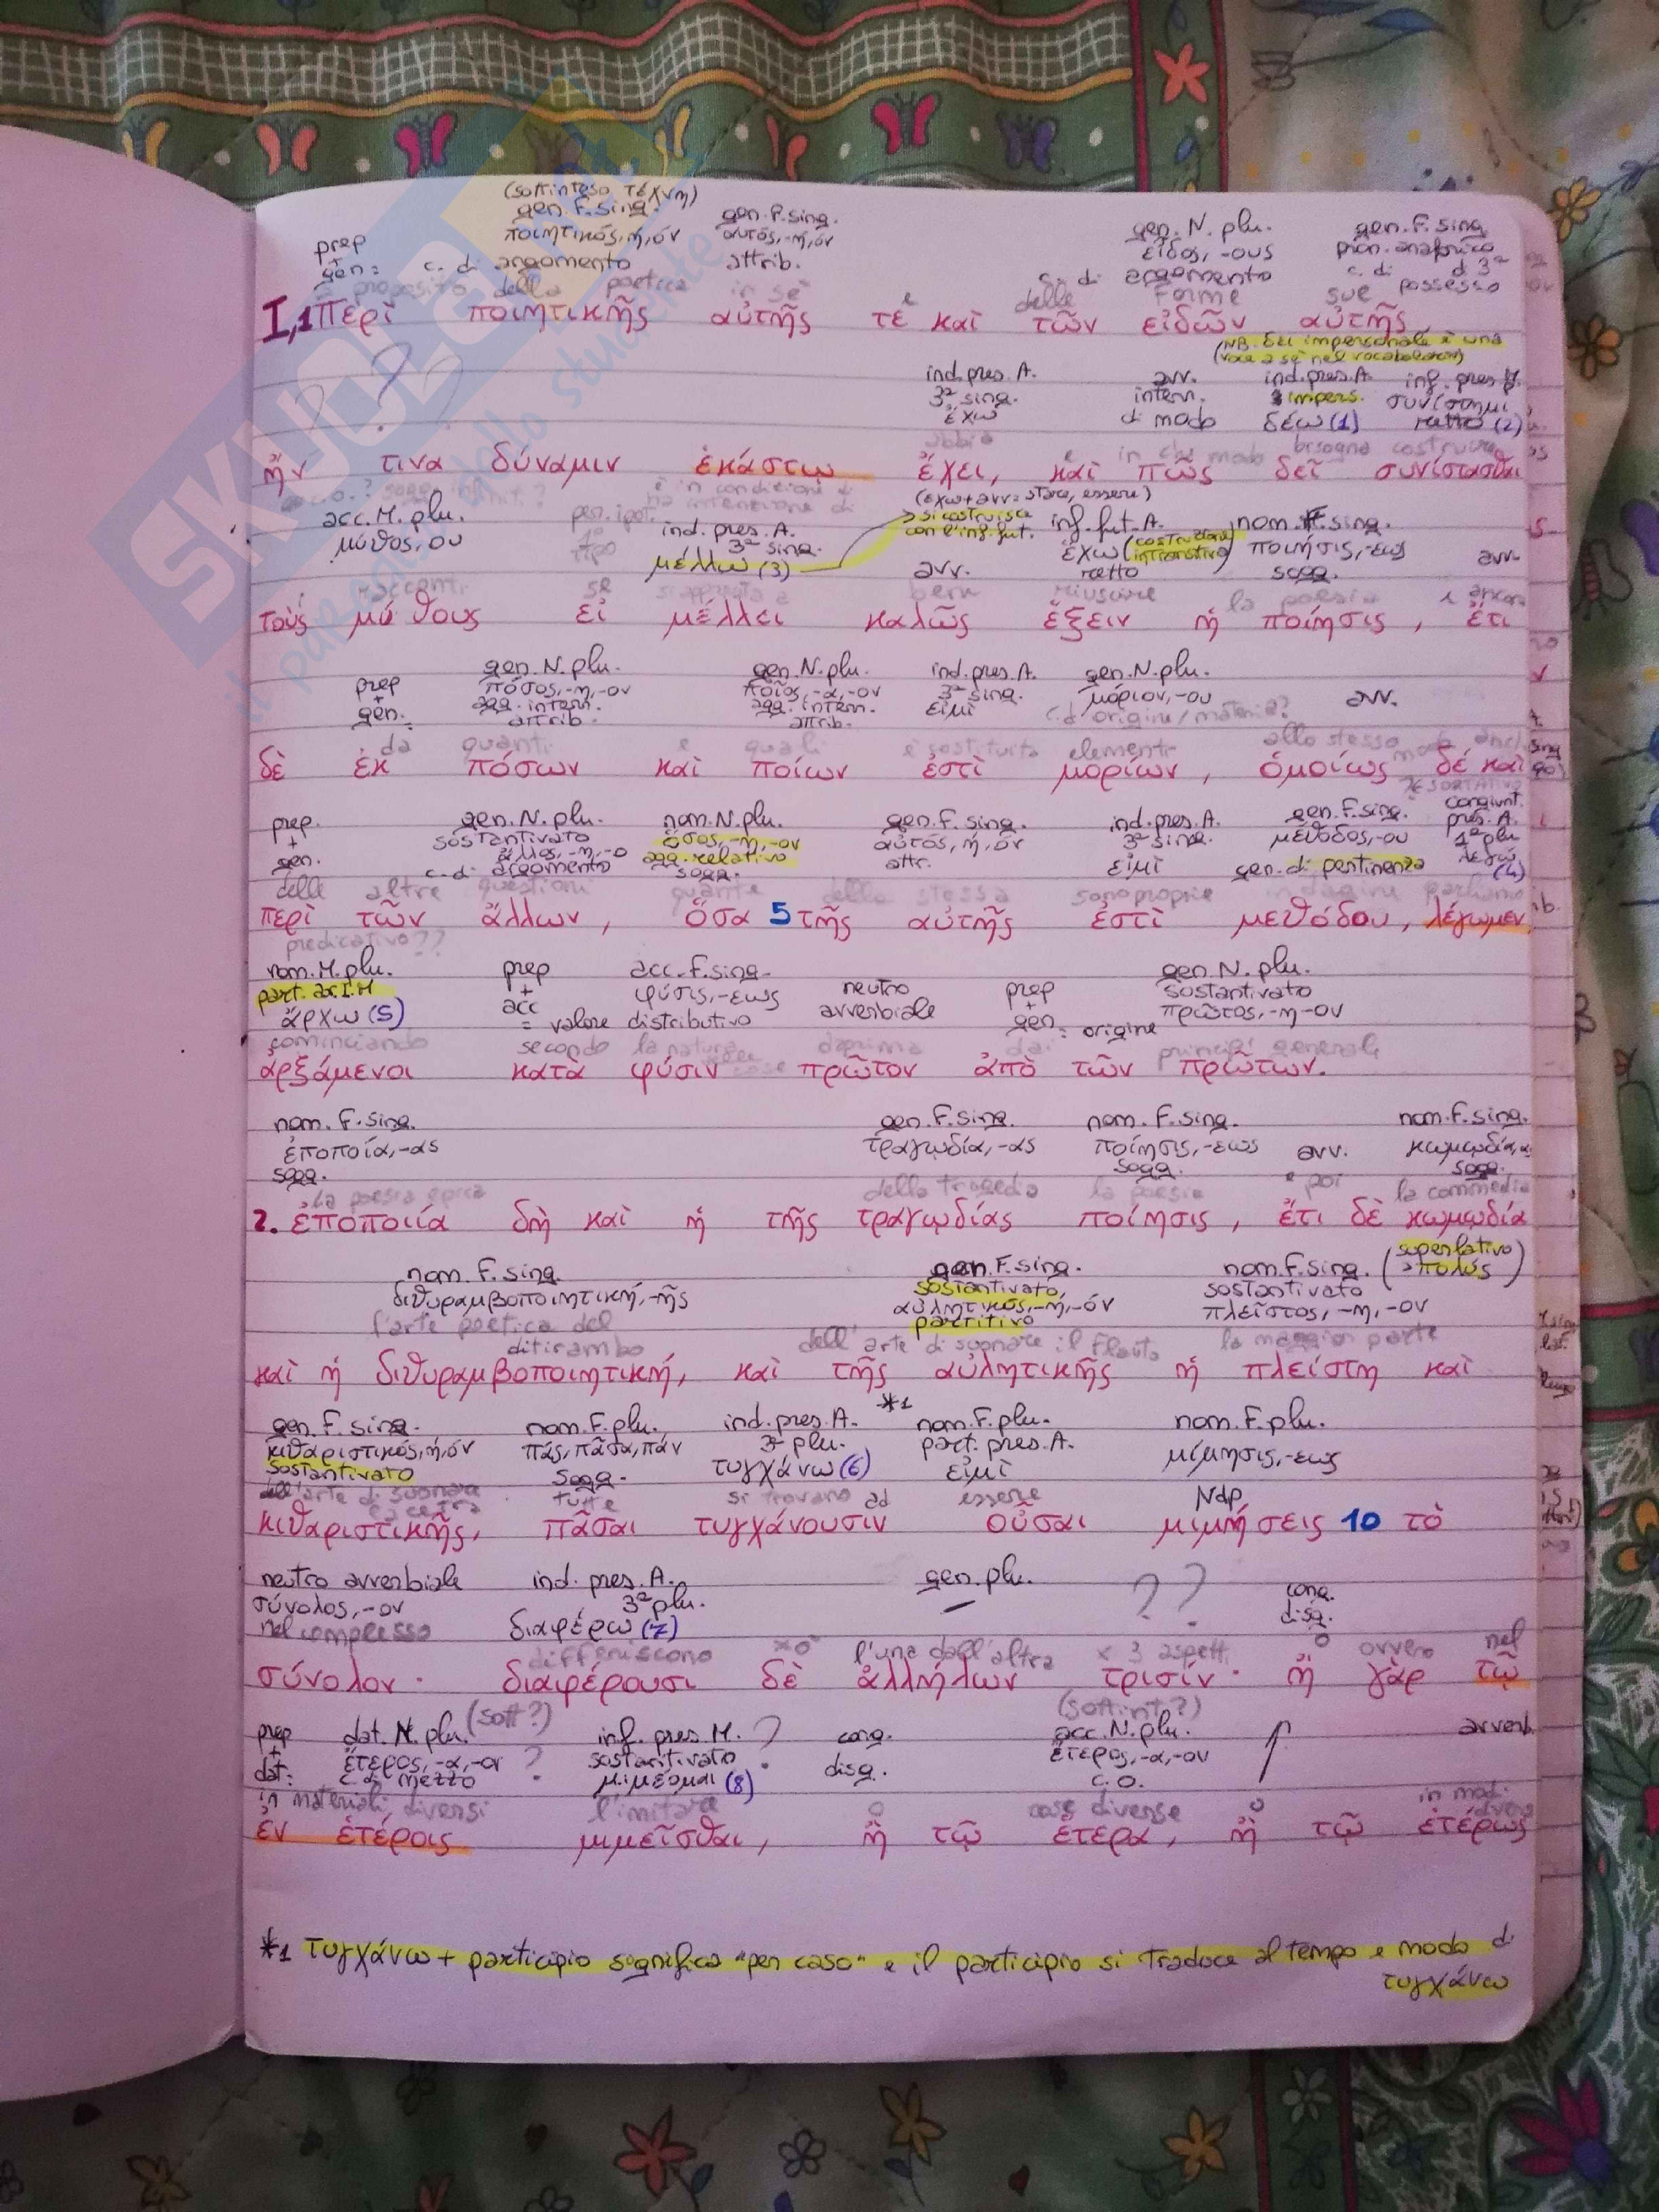 (sottinteso τέχνη)
gen. F. sing. gen. F. sing. gen. N. plu. gen. F. sing
prep ποιητικός, ή, όν αυτός, -ή, όν εἶδος, -ους pron. anaforico
+
gen: c. di argomento attrib. c. di argomento c. di d 3ª
a proposito della poetica in sé e delle forme sue possesso
I,1 Περὶ ποιητικῆς αὐτῆς τε καὶ τῶν εἰδῶν αὐτῆς
(NB. δεῖ impersonale è una
voce a sé nel vocabolario)
ind. pres. A. avv. ind. pres. A. inf. pres.
3ª sing. interr. impers. συνίστημι
ἔχω di modo δέω (1) retto (2)
abbia e in che modo bisogna costruire
ἥν τινα δύναμιν ἑκάστῳ ἔχει, καὶ πῶς δεῖ συνίστασθαι
(ἔχω + avv = stare, essere)
acc. M. plu. per. ipot. ind. pres. A. si costruisce inf. fut. A. nom. F. sing.
μῦθος, ου 1° 3ª sing. con l'inf. fut. ἔχω (costruzione intransitiva) ποίησις, -εως
tipo μέλλω (3) avv. retto sogg. avv.
i racconti se bene riuscire la poesia e ancora
τοὺς μύθους εἰ μέλλει καλῶς ἕξειν ἡ ποίησις, ἔτι
gen. N. plu. gen. N. plu. ind. pres. A. gen. N. plu.
prep πόσος, -η, -ον ποῖος, -α, -ον 3ª sing. μόριον, -ου avv.
+
gen. agg. interr. agg. interr. εἰμί c. d origine/materia?
attrib. attrib.
da quanti e quali è costituita elementi allo stesso modo anche
δὲ ἐκ πόσων καὶ ποίων ἐστὶ μορίων, ὁμοίως δὲ καὶ
ESORTATIVO
prep. gen. N. plu. nom. N. plu. gen. F. sing. ind. pres. A. gen. F. sing. congiunt.
+ sostantivato ὅσος, -η, -ον αὐτός, ή, όν 3ª sing. μέθοδος, -ου pres. A.
gen. ἄλλος, -η, -ο agg. relativo attr. εἰμί gen. di pertinenza 1ª plu
c. di argomento sogg. λέγω (4)
delle altre questioni quante della stessa sono proprie indagine parliamo
περὶ τῶν ἄλλων, ὅσα 5 τῆς αὐτῆς ἐστὶ μεθόδου, λέγωμεν
predicativo??
nom. M. plu. prep acc. F. sing. gen. N. plu.
part. ao. I. M + φύσις, -εως neutro prep sostantivato
ἄρχω (5) acc avverbiale + πρῶτος, -η -ον
= valore distributivo gen = origine
cominciando secondo la natura dapprima dai principi generali
ἀρξάμενοι κατὰ φύσιν πρῶτον ἀπὸ τῶν πρώτων.
nom. F. sing. gen. F. sing. nom. F. sing. nom. F. sing.
ἐποποιία, -ας τραγῳδία, -ας ποίησις, -εως avv. κωμῳδία, α
sogg. sogg. sogg.
la poesia epica della tragedia la poesia e poi la commedia
2. ἐποποιία δὴ καὶ ἡ τῆς τραγῳδίας ποίησις, ἔτι δὲ κωμῳδία
nom. F. sing. gen. F. sing. nom. F. sing. (superlativo > πολύς)
διθυραμβοποιητική, -ῆς sostantivato, sostantivato
αὐλητικός, -ή, -όν πλεῖστος, -η, -ον
l'arte poetica del partitivo
ditirambo dell'arte di suonare il flauto la maggior parte
καὶ ἡ διθυραμβοποιητική, καὶ τῆς αὐλητικῆς ἡ πλείστη καὶ
*1
gen. F. sing. nom. F. plu. ind. pres. A. nom. F. plu. nom. F. plu.
κιθαριστικός, ή, όν πᾶς, πᾶσα, πᾶν 3ª plu. part. pres. A. μίμησις, -εως
sostantivato sogg. τυγχάνω (6) εἰμί
dell'arte di suonare la cetra tutte si trovano ad essere Ndp
κιθαριστικῆς, πᾶσαι τυγχάνουσιν οὖσαι μιμήσεις 10 τὸ
neutro avverbiale ind. pres. A. gen. plu. ??
σύνολος, -ον 3ª plu. cong.
nel complesso διαφέρω (7) disg.
differiscono l'una dall'altra x 3 aspetti o ovvero nel
σύνολον· διαφέρουσι δὲ ἀλλήλων τρισίν· ἢ γὰρ τῷ
(sott?) (sottint?)
prep dat. N. plu. inf. pres. M. ? cong. acc. N. plu. avverb.
+ ἕτερος, -α, -ον ? sostantivato disg. ἕτερος, -α, -ον
dat: c. d. mezzo μιμέομαι (8) c. o.
in materiali diversi l'imitare o cose diverse o in modi diversi
ἐν ἑτέροις μιμεῖσθαι, ἢ τῷ ἕτερα, ἢ τῷ ἑτέρως
*1 τυγχάνω + participio significa "per caso" e il participio si traduce al tempo e modo di
τυγχάνω
SKUOLA.net
il paradiso dello studente